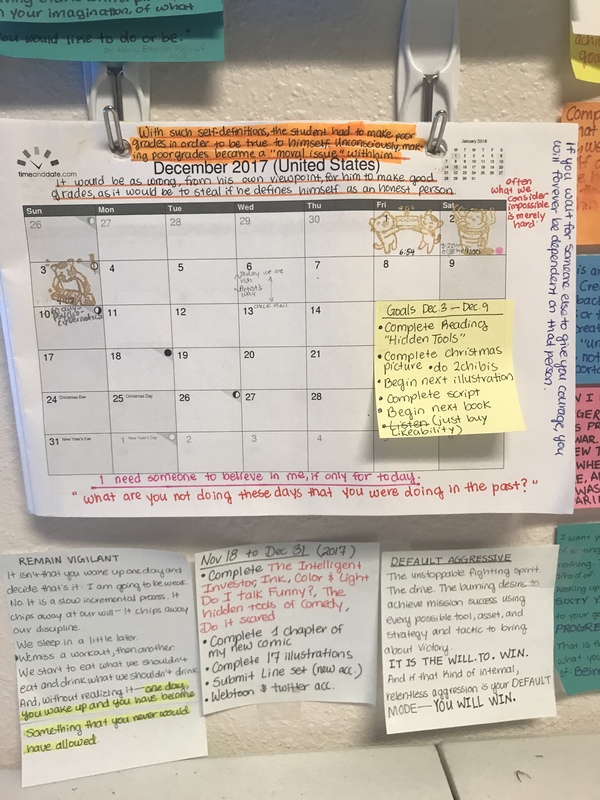 n your imagination, of what
you would like to do or be."
With such self-definitions, the student had to make poor
grades in order to be true to himself. Unconsciously, mak-
ing poor grades became a "moral issue" with him.
timeanddate.com
December 2017 (United States)
January 2018
It would be as wrong, from his own viewpoint, for him to make good
grades, as it would be to steal if he defines himself as an honest person
often
what we
consider
impossible
is merely
hard.
If you wait for someone else to give you courage, you
will forever be dependent on that person.
Sun Mon Tue Wed Thu Fri Sat
26 27 28 29 30 1 2
6:54
3 4 5 6 7 8 9
Artist's
way
10 11 12 13 14
CHECK MAIL
17 18 19 20 21
24 Christmas Eve 25 Christmas Day 26 27 28
31 New Year's Eve 1 New Year's Day 2 3 4
Goals Dec.3 — Dec.9
• Complete Reading
"Hidden Tools"
• Complete christmas
picture • do 2chibis
• Begin next illustration
• Complete script
• Begin next book
• Listen (just buy
Likeability)
I need someone to believe in me, if only for today.
"what are you not doing these days that you were doing in the past?"
REMAIN VIGILANT
It isn't that you wake up one day and
decide that's it: I am going to be weak.
No. It is a slow incremental process. It
chips away at our will - It chips away
our discipline.
We sleep in a little later.
We miss a workout, then another.
We start to eat what we shouldn't
eat and drink what we shouldn't drink
And, without realizing it — one day,
you wake up and you have become
something that you never would
have allowed.
Nov 18 to Dec 31 (2017)
• Complete The Intelligent
Investor, Ink, Color & Light
Do I talk Funny?, The
hidden tools of Comedy,
Do it scared
• Complete 1 chapter of
my new comic
• Complete 17 illustrations
• Submit Line set (new acc.)
• Webtoon & twitter acc.
DEFAULT AGGRESSIVE
The unstoppable fighting spirit.
The drive. The burning desire to
achieve mission success using
every possible tool, asset, and
strategy and tactic to bring
about victory.
IT IS THE WILL. TO. WIN.
And if that kind of internal,
relentless aggression is your DEFAULT
MODE — YOU WILL WIN.